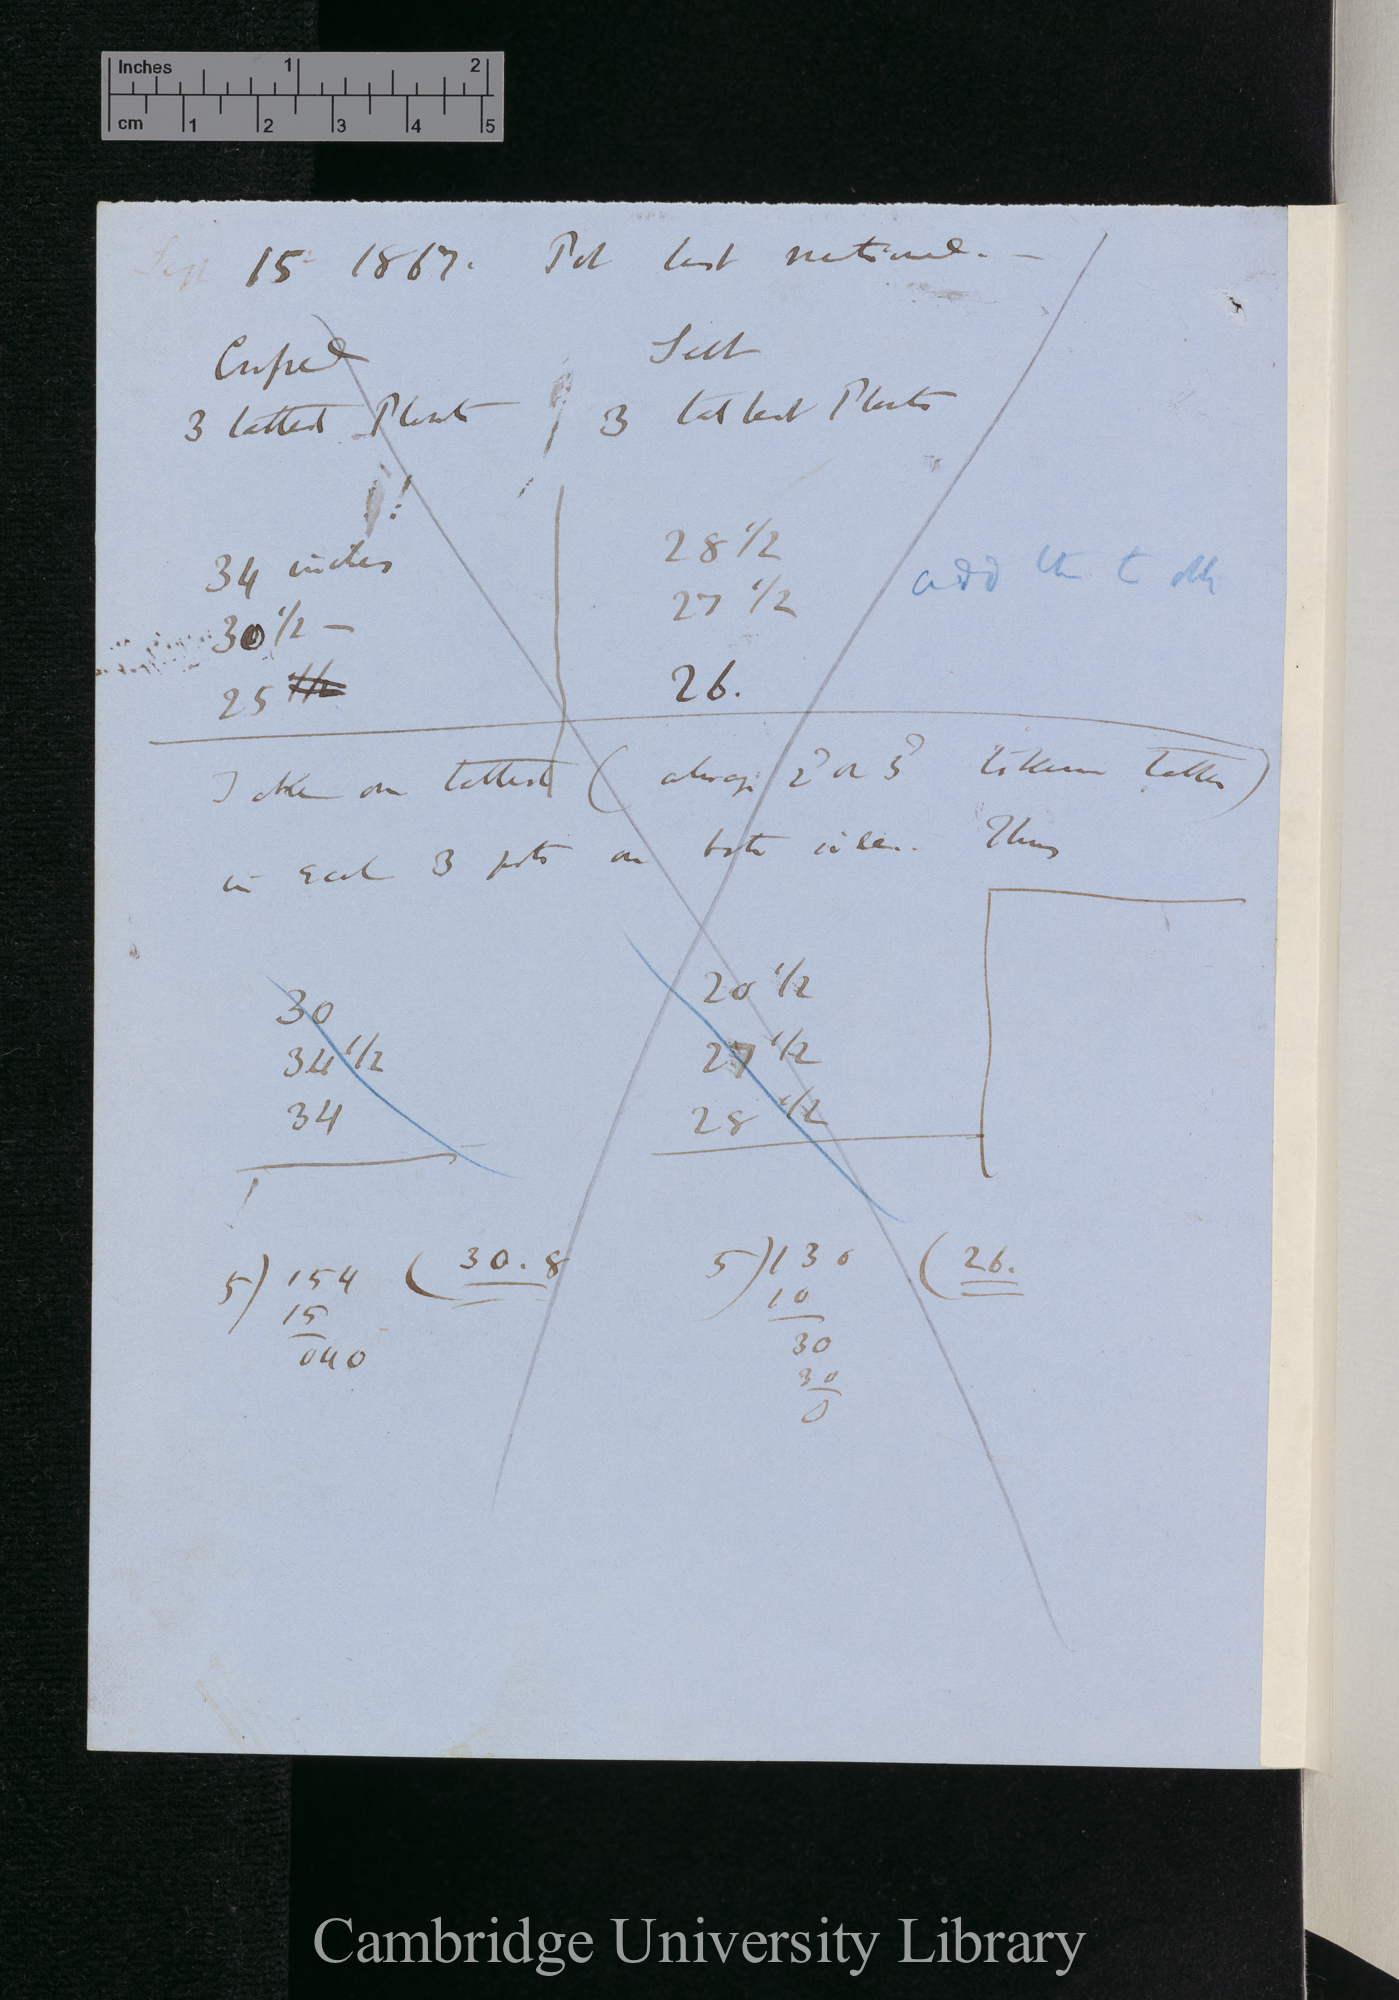 Inches 1 2
cm 1 2 3 4 5
Sept 15 1867. Pot last natural. —
Crossed Self
3 tallest Plants 3 tallest Plants
!
34 inches 28 1/2
30 1/2 — 27 1/2
25 26.
add the to
Taken on tallest (always 2d or 3d taken taller)
in each 3 pots on both sides. Thus
30 20 1/2
34 1/2 27 1/2
34 28 1/2
5) 154 (30.8 5) 130 (26.
15 10
040 30
30
0
Cambridge University Library